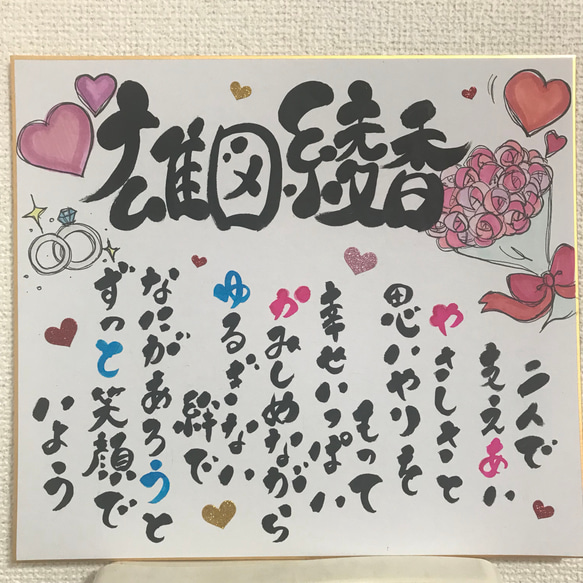 雄図 綾香
二人で
支えあい
やさしさと
思いやりを
もって
幸せいっぱい
かみしめながら
ゆるぎない
絆で
なにがあろうと
ずっと笑顔で
いよう